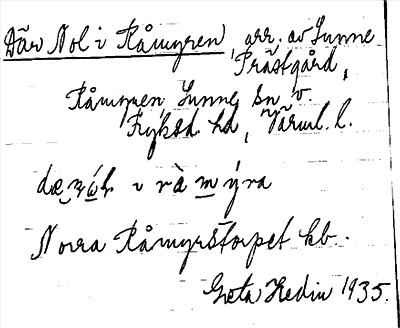 Där Nol i Råmyren, arr. av Sunne
Prästgård,
Råmyren Sunne sn v.
Fryksd hd, Värml. l.
i rà m ýra
Norra Råmyrstorpet kb.
Greta Hedin 1935.